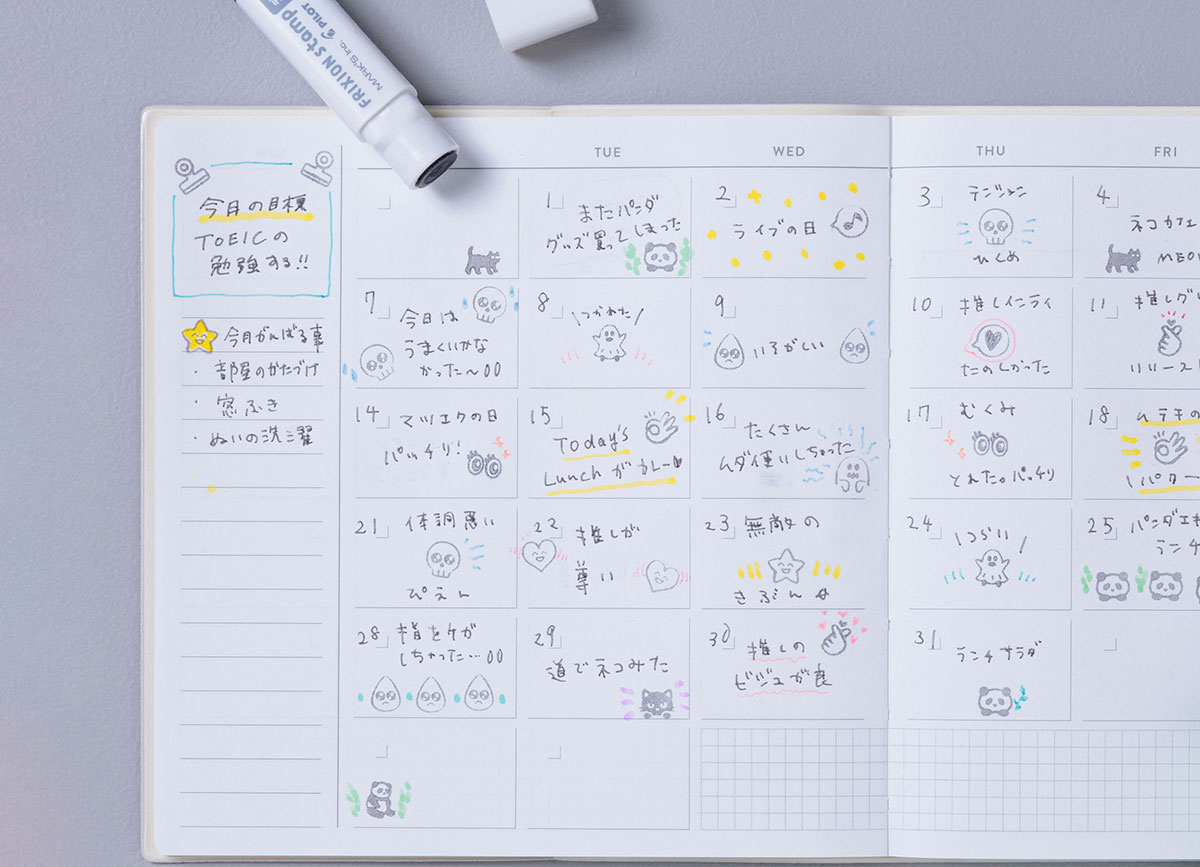 FRIXION stamp
MARK'S Inc. PILOT
TUE
WED
THU
FRI
今月の目標
TOEICの
勉強する!!
今月がんばる事
・部屋のかたづけ
・窓ふき
・ぬいの洗濯
1
またパンダ
グッズ買ってしまった
2
ライブの日
3
テンション
ひくめ
4
ネコカフェ
7
今日は
うまくいかな
かった〜
8
\つかれた/
9
いそがしい
10
推しインライ
たのしかった
11
14
マツエクの日
パッチリ!
15
Today's
Lunch が カレー
16
たくさん
ムダ使いしちゃった
17
むくみ
とれた。パッチリ
18
ムテキの
21
体調悪い
ぴえん
22
推しが
尊い
23
無敵の
きぶん
24
\つらい/
25
ランチ
28
指をケガ
しちゃった…
29
道でネコみた
30
推しの
ビジュが良
31
ランチサラダ